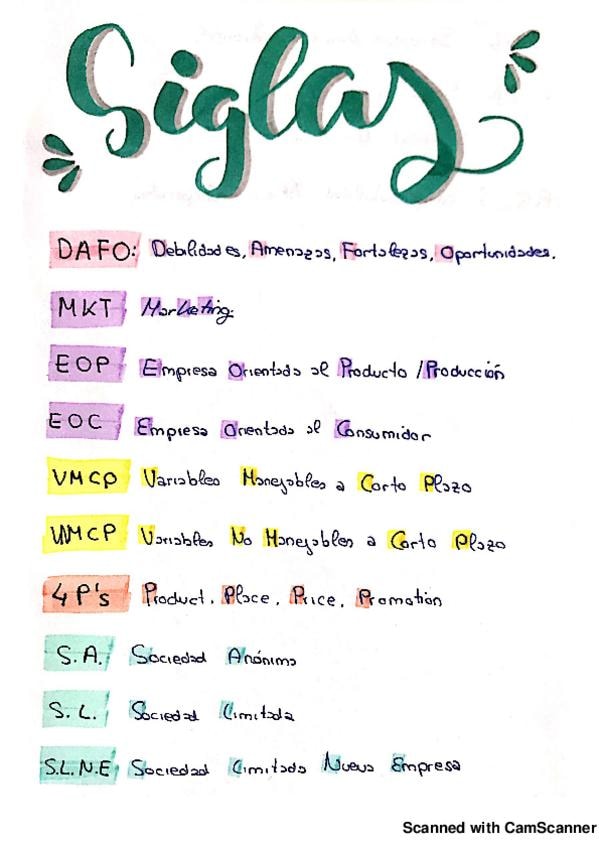 Siglas
DAFO: Debilidades, Amenazas, Fortalezas, Oportunidades.
MKT Marketing.
EOP Empresa Orientada al Producto / Producción
EOC Empresa Orientada al Consumidor
VMCP Variables Manejables a Corto Plazo
VNMCP Variables No Manejables a Corto Plazo
4 P's Product, Place, Price, Promotion
S.A. Sociedad Anónima
S.L. Sociedad Limitada
S.L.N.E Sociedad Limitada Nueva Empresa
Scanned with CamScanner